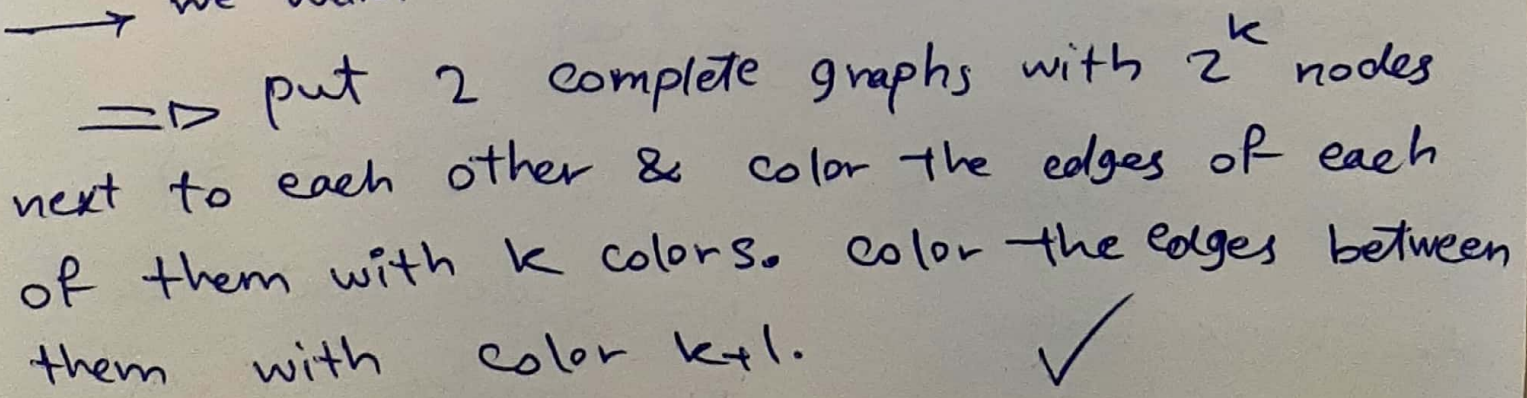 → we
⇒ put 2 complete graphs with 2^k nodes
next to each other & color the edges of each
of them with k colors. color the edges between
them with color k+1. ✓